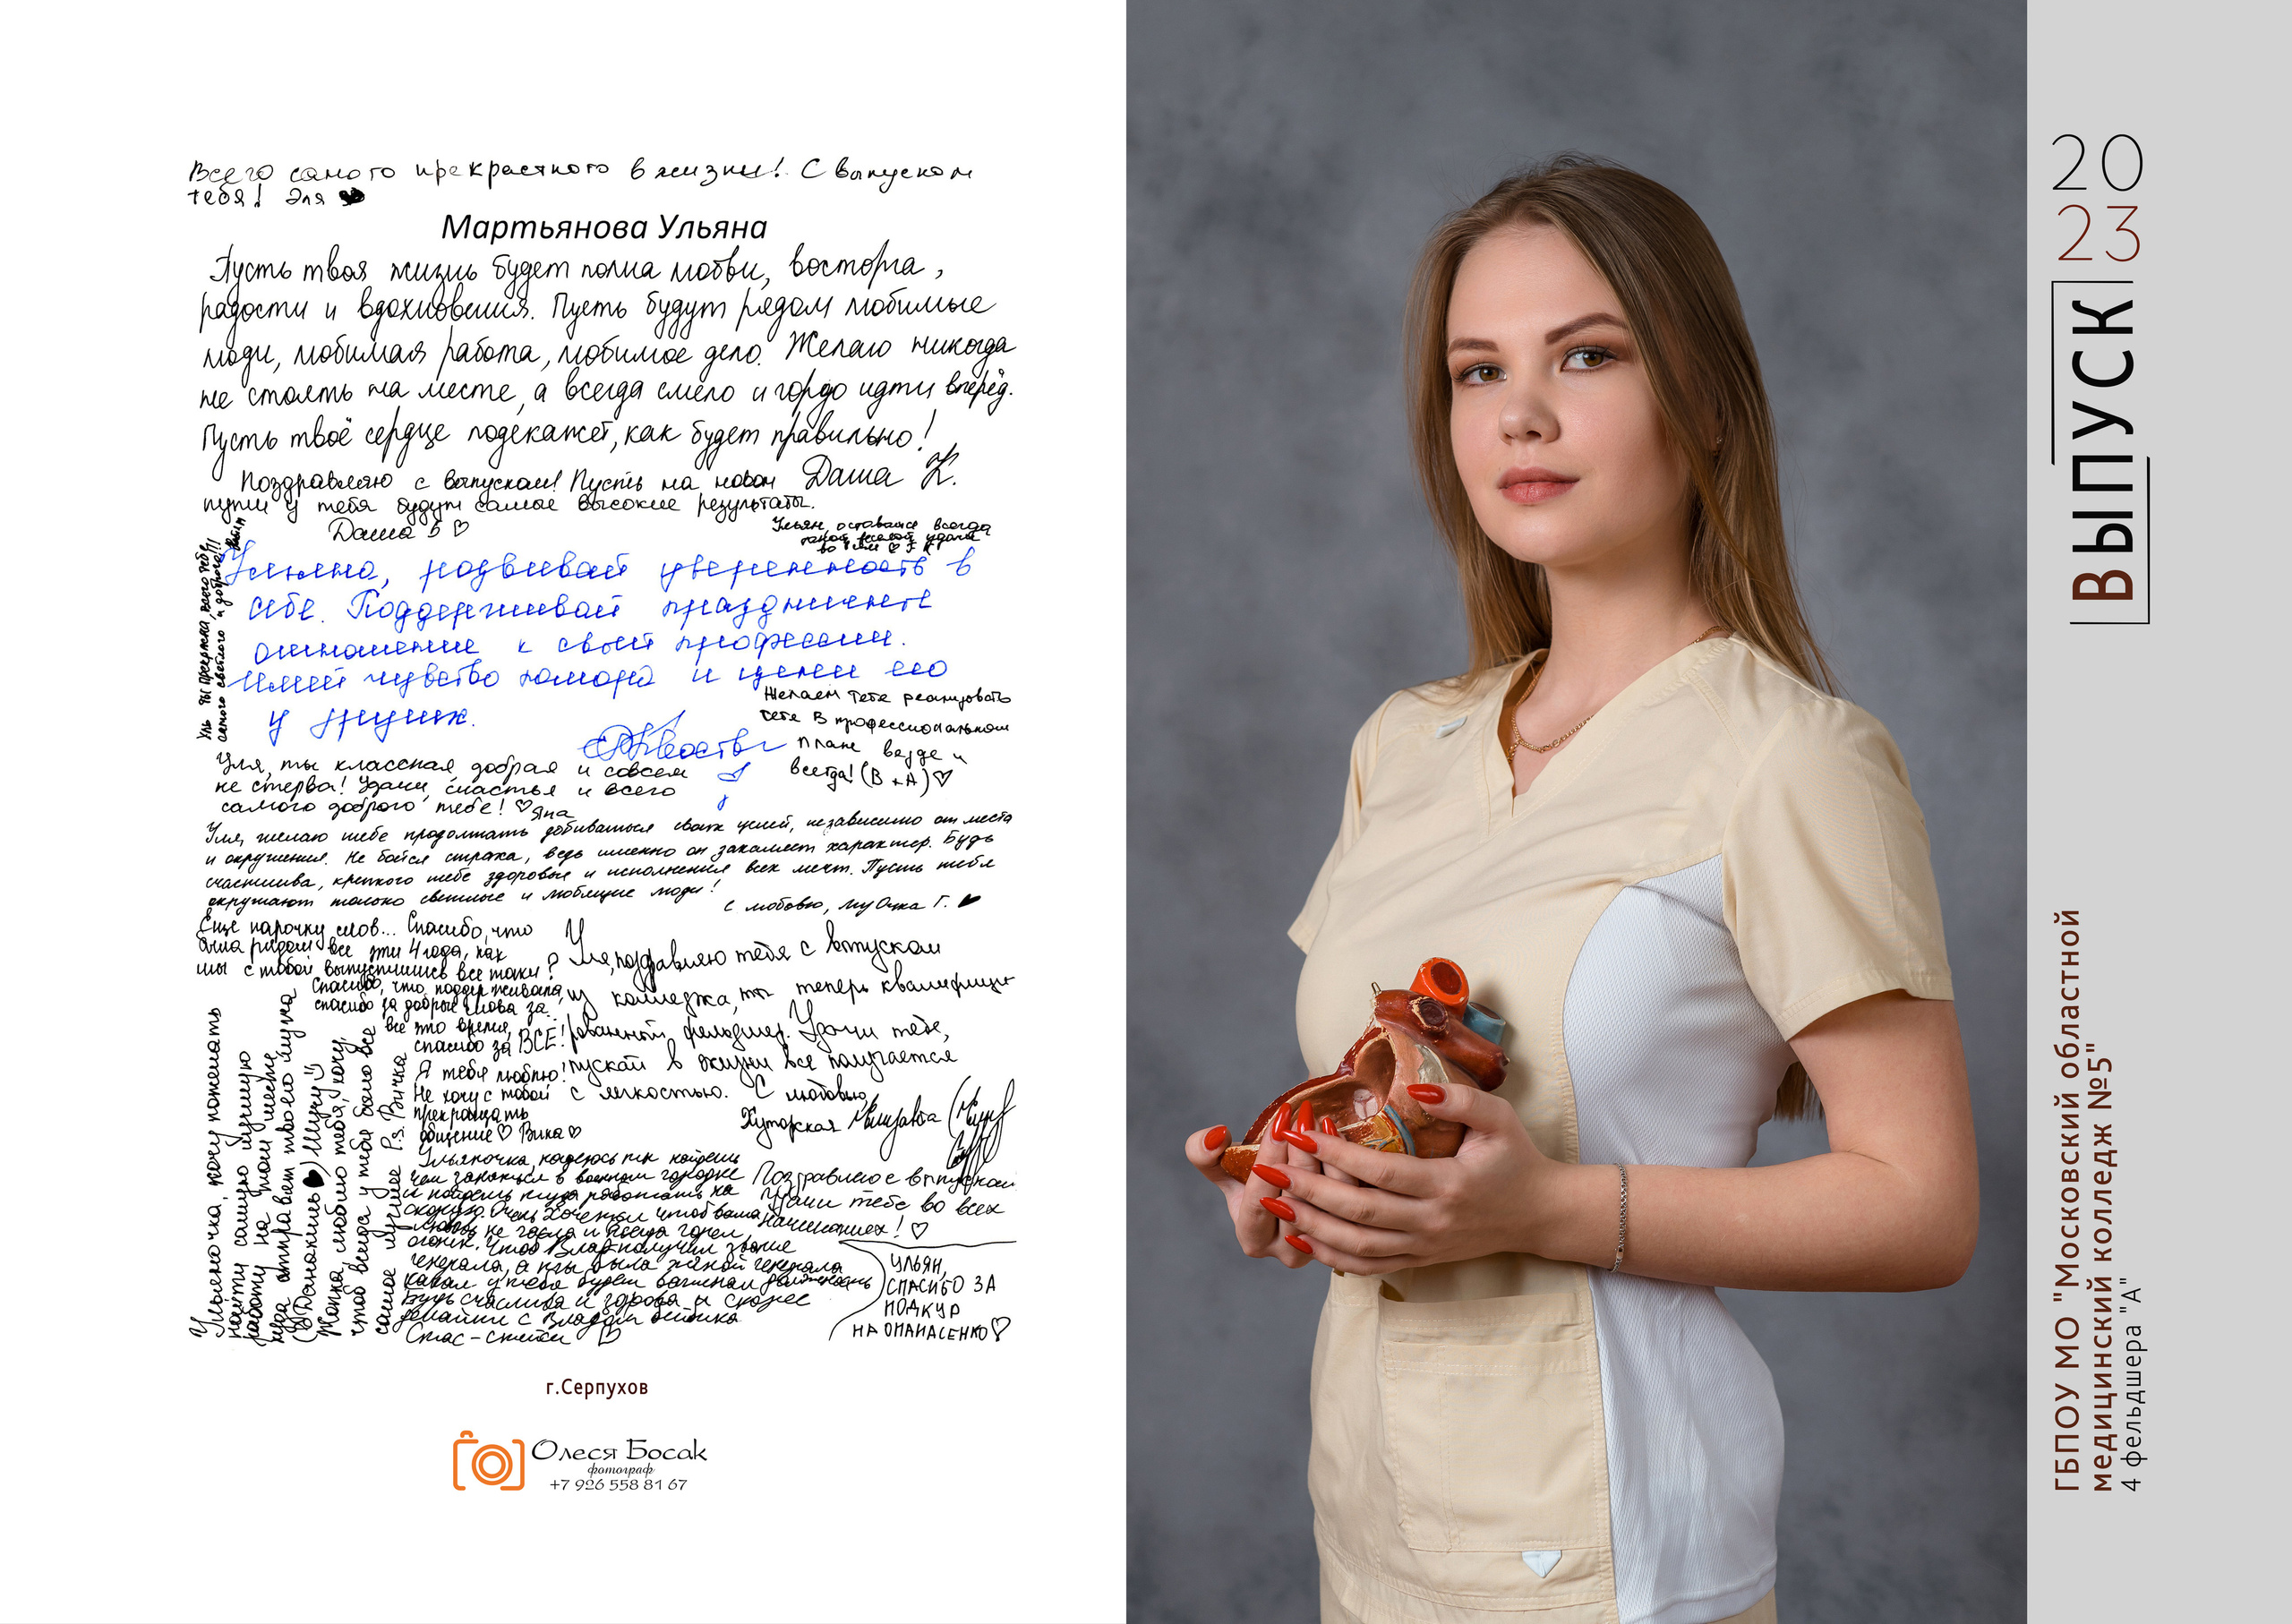 Всего самого прекрастного в жизни! С выпуском
тебя! Эля
Мартьянова Ульяна
Пусть твоя жизнь будет полна любви, восторга,
радости и вдохновения. Пусть будут рядом любимые
люди, любимая работа, любимое дело. Желаю никогда
не стоять на месте, а всегда смело и гордо идти вперёд.
Пусть твоё сердце подскажет, как будет правильно!
Даша К.
Поздравляю с выпуском! Пусть на новом
пути у тебя будут самые высокие результаты.
Даша Б ♡
Ульян, оставайся всегда
такой
Уль ты прекрасна, всего тебе
самого светлого и доброго!!!
Ульяна, развивай уверенность в
себе. Поддерживай
отношение к своей профессии.
Имей чувство юмора и цени его
у других.
Желаем тебе реализовать
себя в профессиональном
плане везде и
всегда! (В + А) ♡
Уля, ты классная добрая и совсем
не стерва! Удачи, счастья и всего
самого доброго тебе! ♡ Яна
Уля, желаю тебе продолжать добиваться своих целей, независимо от места
и окружения. Не бойся страха, ведь именно он закаляет характер. Будь
счастлива, крепкого тебе здоровья и исполнения всех мечт. Пусть тебя
окружают только светлые и любящие люди!
С любовью, Г. ♥
Еще парочку слов... Спасибо, что
была рядом все эти 4 года, как
мы с тобой выпустились все таки?
Спасибо, что поддерживала,
спасибо за добрые слова за
все это время,
спасибо за ВСЕ!
Я тебя люблю!
Не хочу с тобой
прекращать
общение ♡ Вика ♡
Уля, поздравляю тебя с выпуском
из колледжа, ты теперь квалифици-
рованный фельдшер. Удачи тебе,
пускай в жизни все получается
с легкостью. С любовью,
Хуторская Елизавета
Ульяночка, хочу пожелать
найти самую лучшую
работу на том месте,
куда отправят твоего мужа
Жопка, люблю тебя, хочу,
чтоб всегда у тебя было все
самое лучшее P.s. Вичка
Ульяночка, надеюсь ты найдешь
чем заняться в военном городке
и найдешь куда работать на
скорую. Очень хочется чтоб ваша
любовь не гасла и всегда горел
огонек. Чтоб Влад получил звание
генерала, а ты была женой генерала
Будь счастлива и здорова и скорее
с Владом
Поздравляю с выпуском
Удачи тебе во всех
начинаниях! ♡
УЛЬЯН,
СПАСИБО ЗА
ПОДКУР
НА ОПАНАСЕНКО ♡
г.Серпухов
Олеся Босак
фотограф
+7 926 558 81 67
20
23
ВЫПУСК
ГБПОУ МО "Московский областной
медицинский колледж №5"
4 фельдшера "А"